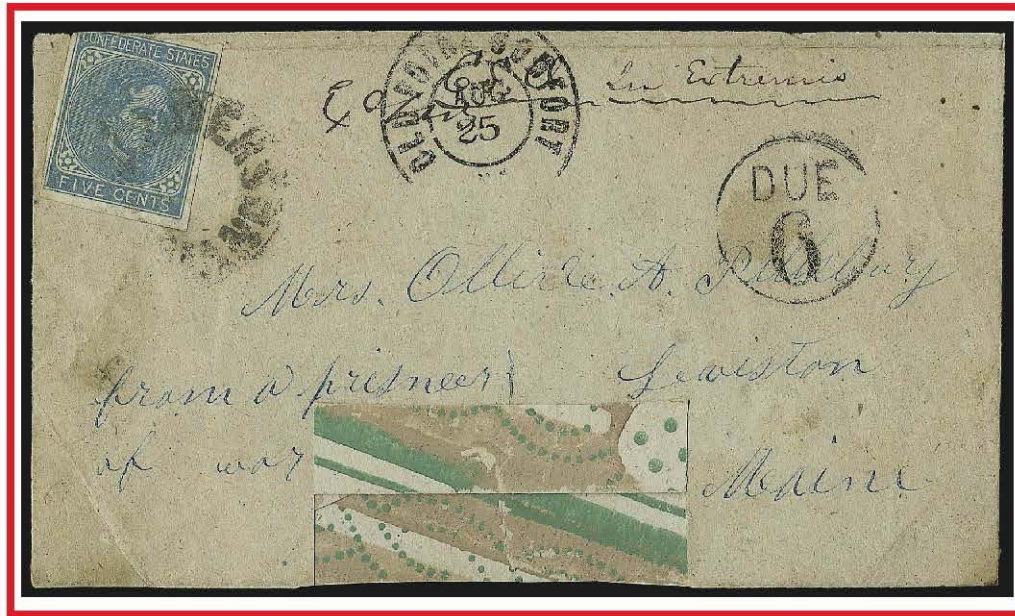 CONFEDERATE STATES
FIVE CENTS
OLD POINT COMFORT
AUG
25
In Extremis
DUE
6
Mrs. Ollive. A. Pillsbury
from a prisneer
Lewiston
of war
Maine